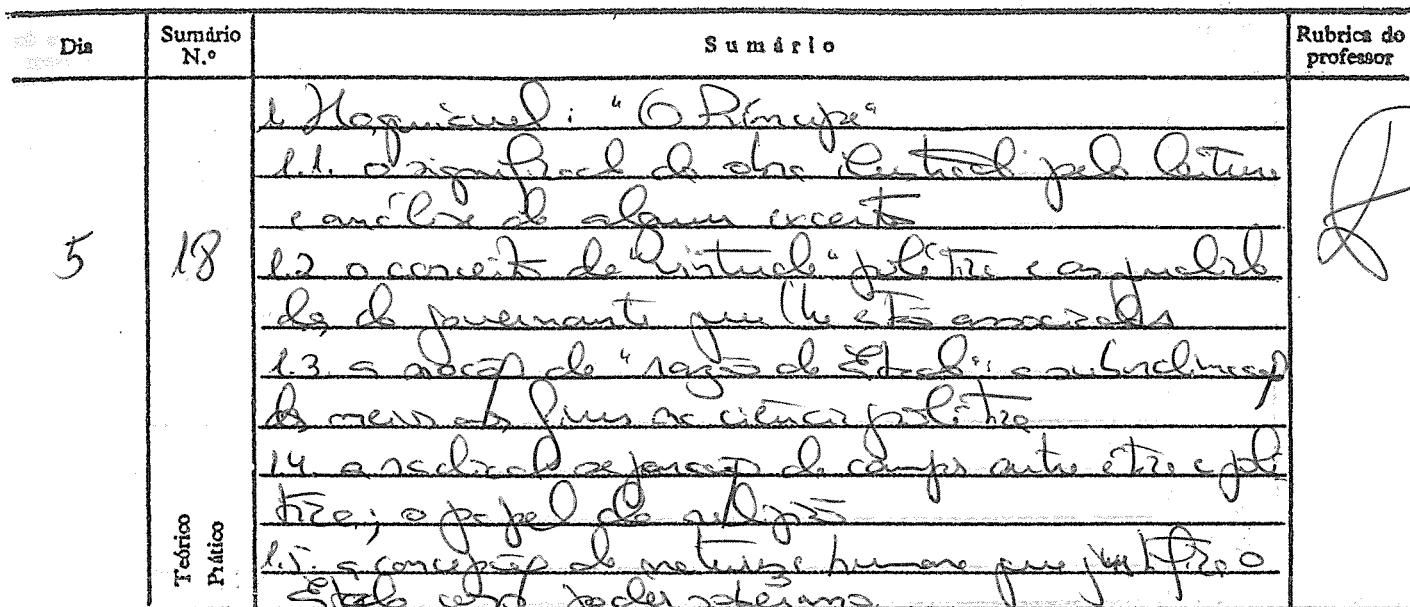 Dia
Sumário N.º
Sumário
Rubrica do professor
1. Maquiavel: "O Príncipe"
1.1. o significado da obra ilustrado pela leitura
e análise de alguns excertos
5
18
1.2 o conceito de "virtude" política e as qualida
des do governante que lhe estão associadas
1.3. a noção de "razão de Estado": a subordinação
dos meios aos fins na ciência política
1.4. a radical separação de campos entre ética e polí
tica; o papel da religião
Teórico
Prático
1.5. a concepção de natureza humana que justifica o
Estado como poder soberano